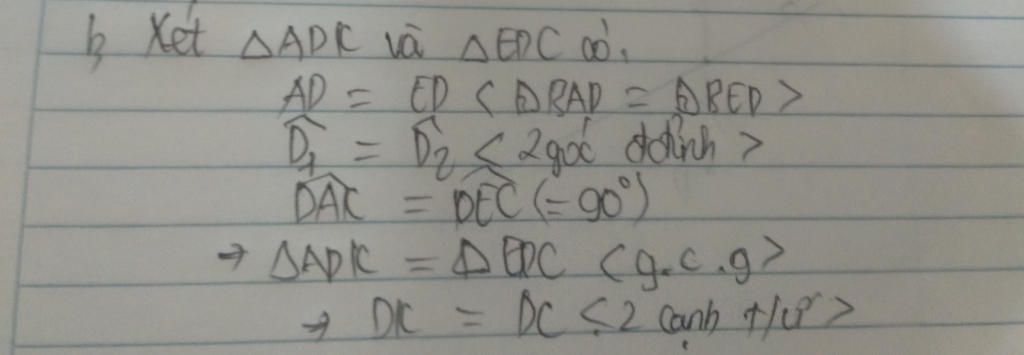 b, Xét △ADK và △EDC có.
AD = ED < △BAD = △BED >
D̂₁ = D̂₂ < 2 góc đđỉnh >
DAK = DEC (= 90°)
→ △ADK = △EDC < g.c.g >
→ DK = DC < 2 cạnh t/ư >